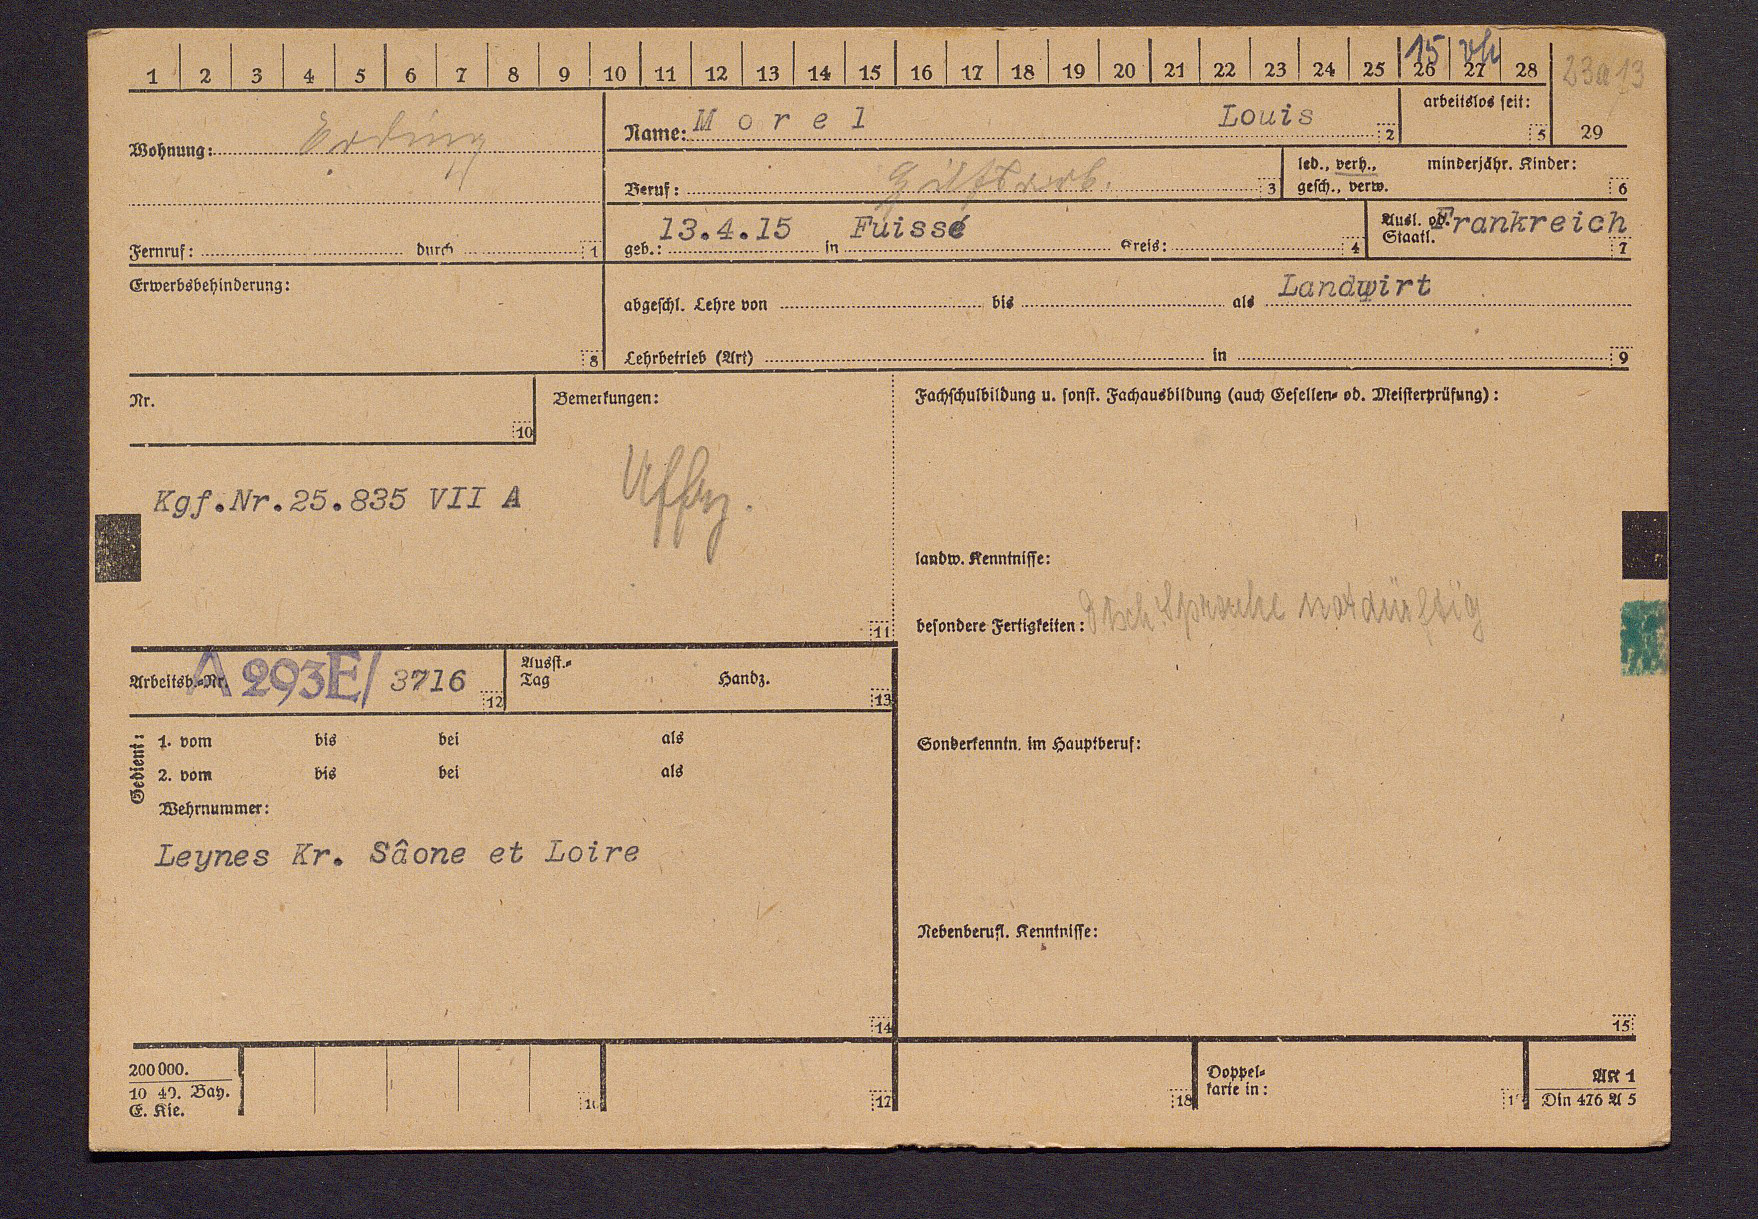 1 2 3 4 5 6 7 8 9 10 11 12 13 14 15 16 17 18 19 20 21 22 23 24 25 26 27 28
15 vh
23a 13
29
Wohnung: Erding
Fernruf: durch 1
Name: Morel Louis 2
arbeitslos seit: 5
Beruf: Hilfsarb. 3
led., verh., gesch., verw.
minderjähr. Kinder: 6
geb.: 13.4.15 in Fuissé Kreis: 4
Ausl. od. Staatl. Frankreich 7
Erwerbsbehinderung: 8
abgeschl. Lehre von bis als Landwirt
Lehrbetrieb (Art) in 9
Nr. 10
Bemerkungen:
Kgf.Nr.25.835 VII A
Uffz.
11
Fachschulbildung u. sonst. Fachausbildung (auch Gesellen- od. Meisterprüfung):
landw. Kenntnisse:
besondere Fertigkeiten: Dtsch. Sprache notdürftig
Arbeitsb.-Nr. A 293E/ 3716 12
Ausst.-Tag Handz. 13
Gedient:
1. vom bis bei als
2. vom bis bei als
Wehrnummer:
Leynes Kr. Sâone et Loire
14
Sonderkenntn. im Hauptberuf:
Nebenberufl. Kenntnisse:
15
200000.
10 40. Bay.
E. Kie.
16
17
18
Doppelkarte in:
19
AK 1
Din 476 A 5